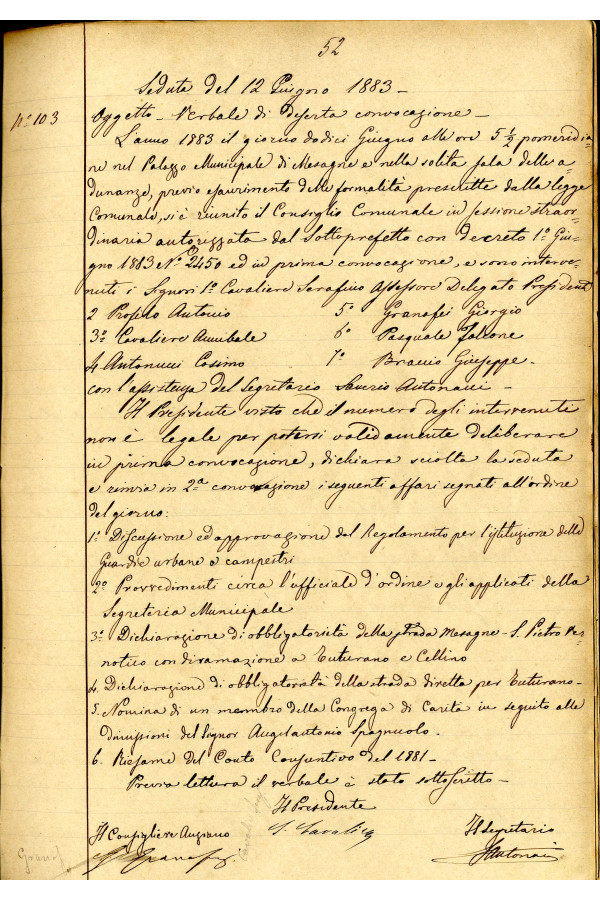 52
Seduta del 12 Giugno 1883 –
N° 103
Oggetto – Verbale di deserta convocazione –
L'anno 1883 il giorno dodici Giugno alle ore 5 ½ pomeridia-
ne nel Palazzo Municipale di Mesagne e nella solita sala delle a-
dunanze, previo esaurimento delle formalità prescritte dalla legge
Comunale, si è riunito il Consiglio Comunale in sessione straor-
dinaria autorizzata dal Sottoprefetto con decreto 1° Giu-
gno 1883 N° 2450 ed in prima convocazione, e sono interve-
nuti i Signori 1° Cavaliere Serafino Assessore Delegato President
2 Profilo Antonio 5° Granafei Giorgio
3° Cavaliere Annibale 6° Pasquale Falcone
4 Antonucci Cosimo 7° Braccio Giuseppe.
con l'assistenza del Segretario Saverio Antonucci –
Il Presidente visto che il numero degli intervenuti
non è legale per potersi validamente deliberare
in prima convocazione, dichiara sciolta la seduta
e rinvia in 2a convocazione i seguenti affari segnati all'ordine
del giorno:
1° Discussione ed approvazione del Regolamento per l'istituzione delle
Guardie urbane e campestri
2° Provvedimenti circa l'ufficiale d'ordine e gli applicati della
Segreteria Municipale
3° Dichiarazione di obbligatorietà della strada Mesagne – S. Pietro Ver-
notico con diramazione a Tuturano e Cellino
4. Dichiarazione di obbligatorietà della strada diretta per Tuturano –
5. Nomina di un membro della Congrega di Carità in seguito alle
dimissioni del Signor Angelantonio Spagnuolo.
6. Riesame del Conto Consuntivo del 1881 –
Previa lettura il verbale è stato sottoscritto –
Il Presidente
S. Cavaliere
Il Consigliere Anziano
G. Granafei
Il Segretario
S Antonucci